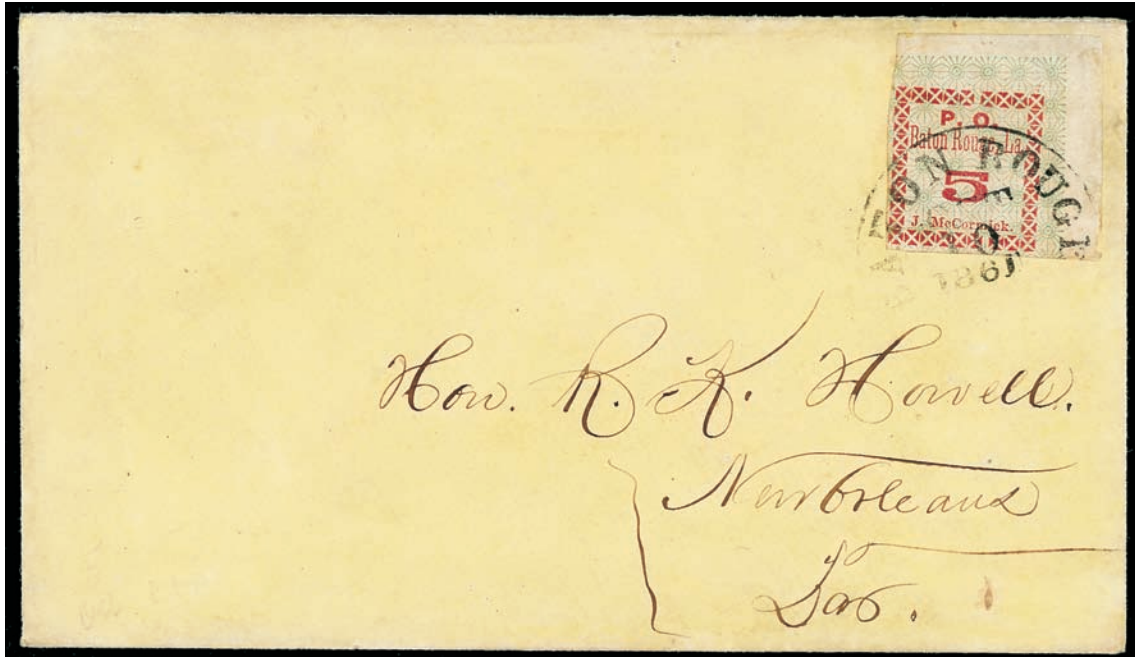 P. O.
Baton Rouge, La.
5
J. McCormick.
BATON ROUGE
1861
Hon. R. K. Howell.
New Orleans
Las.